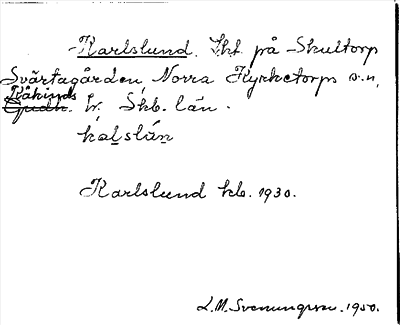 Karlslund. Lht. på Skultorp
Svärtagården, Norra Kyrketorps sn,
Kåkinds
Gudh. hr. Skb. län.
kálslán
Karlslund kb. 1930.
L.M. Svenungsson. 1950.